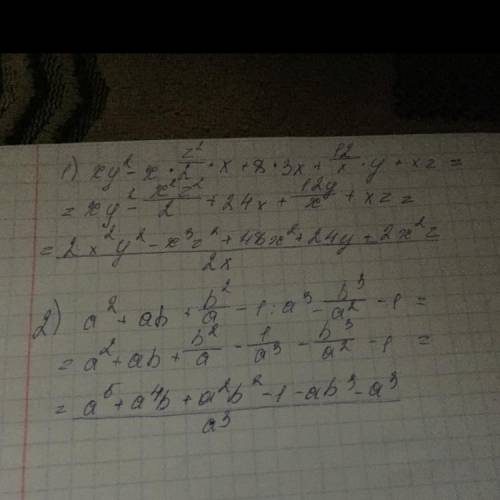 1) xy² - x · z²/2 · x + 8 · 3x + 12/x · y + xz =
= xy² - x²z²/2 + 24x + 12y/x + xz =
= 2x²y² - x³z² + 48x² + 24y + 2x²z / 2x
2) a² + ab + b²/a - 1 : a³ - b³/a² - 1 =
= a² + ab + b²/a - 1/a³ - b³/a² - 1 =
= a⁵ + a⁴b + a²b² - 1 - ab³ - a³ / a³